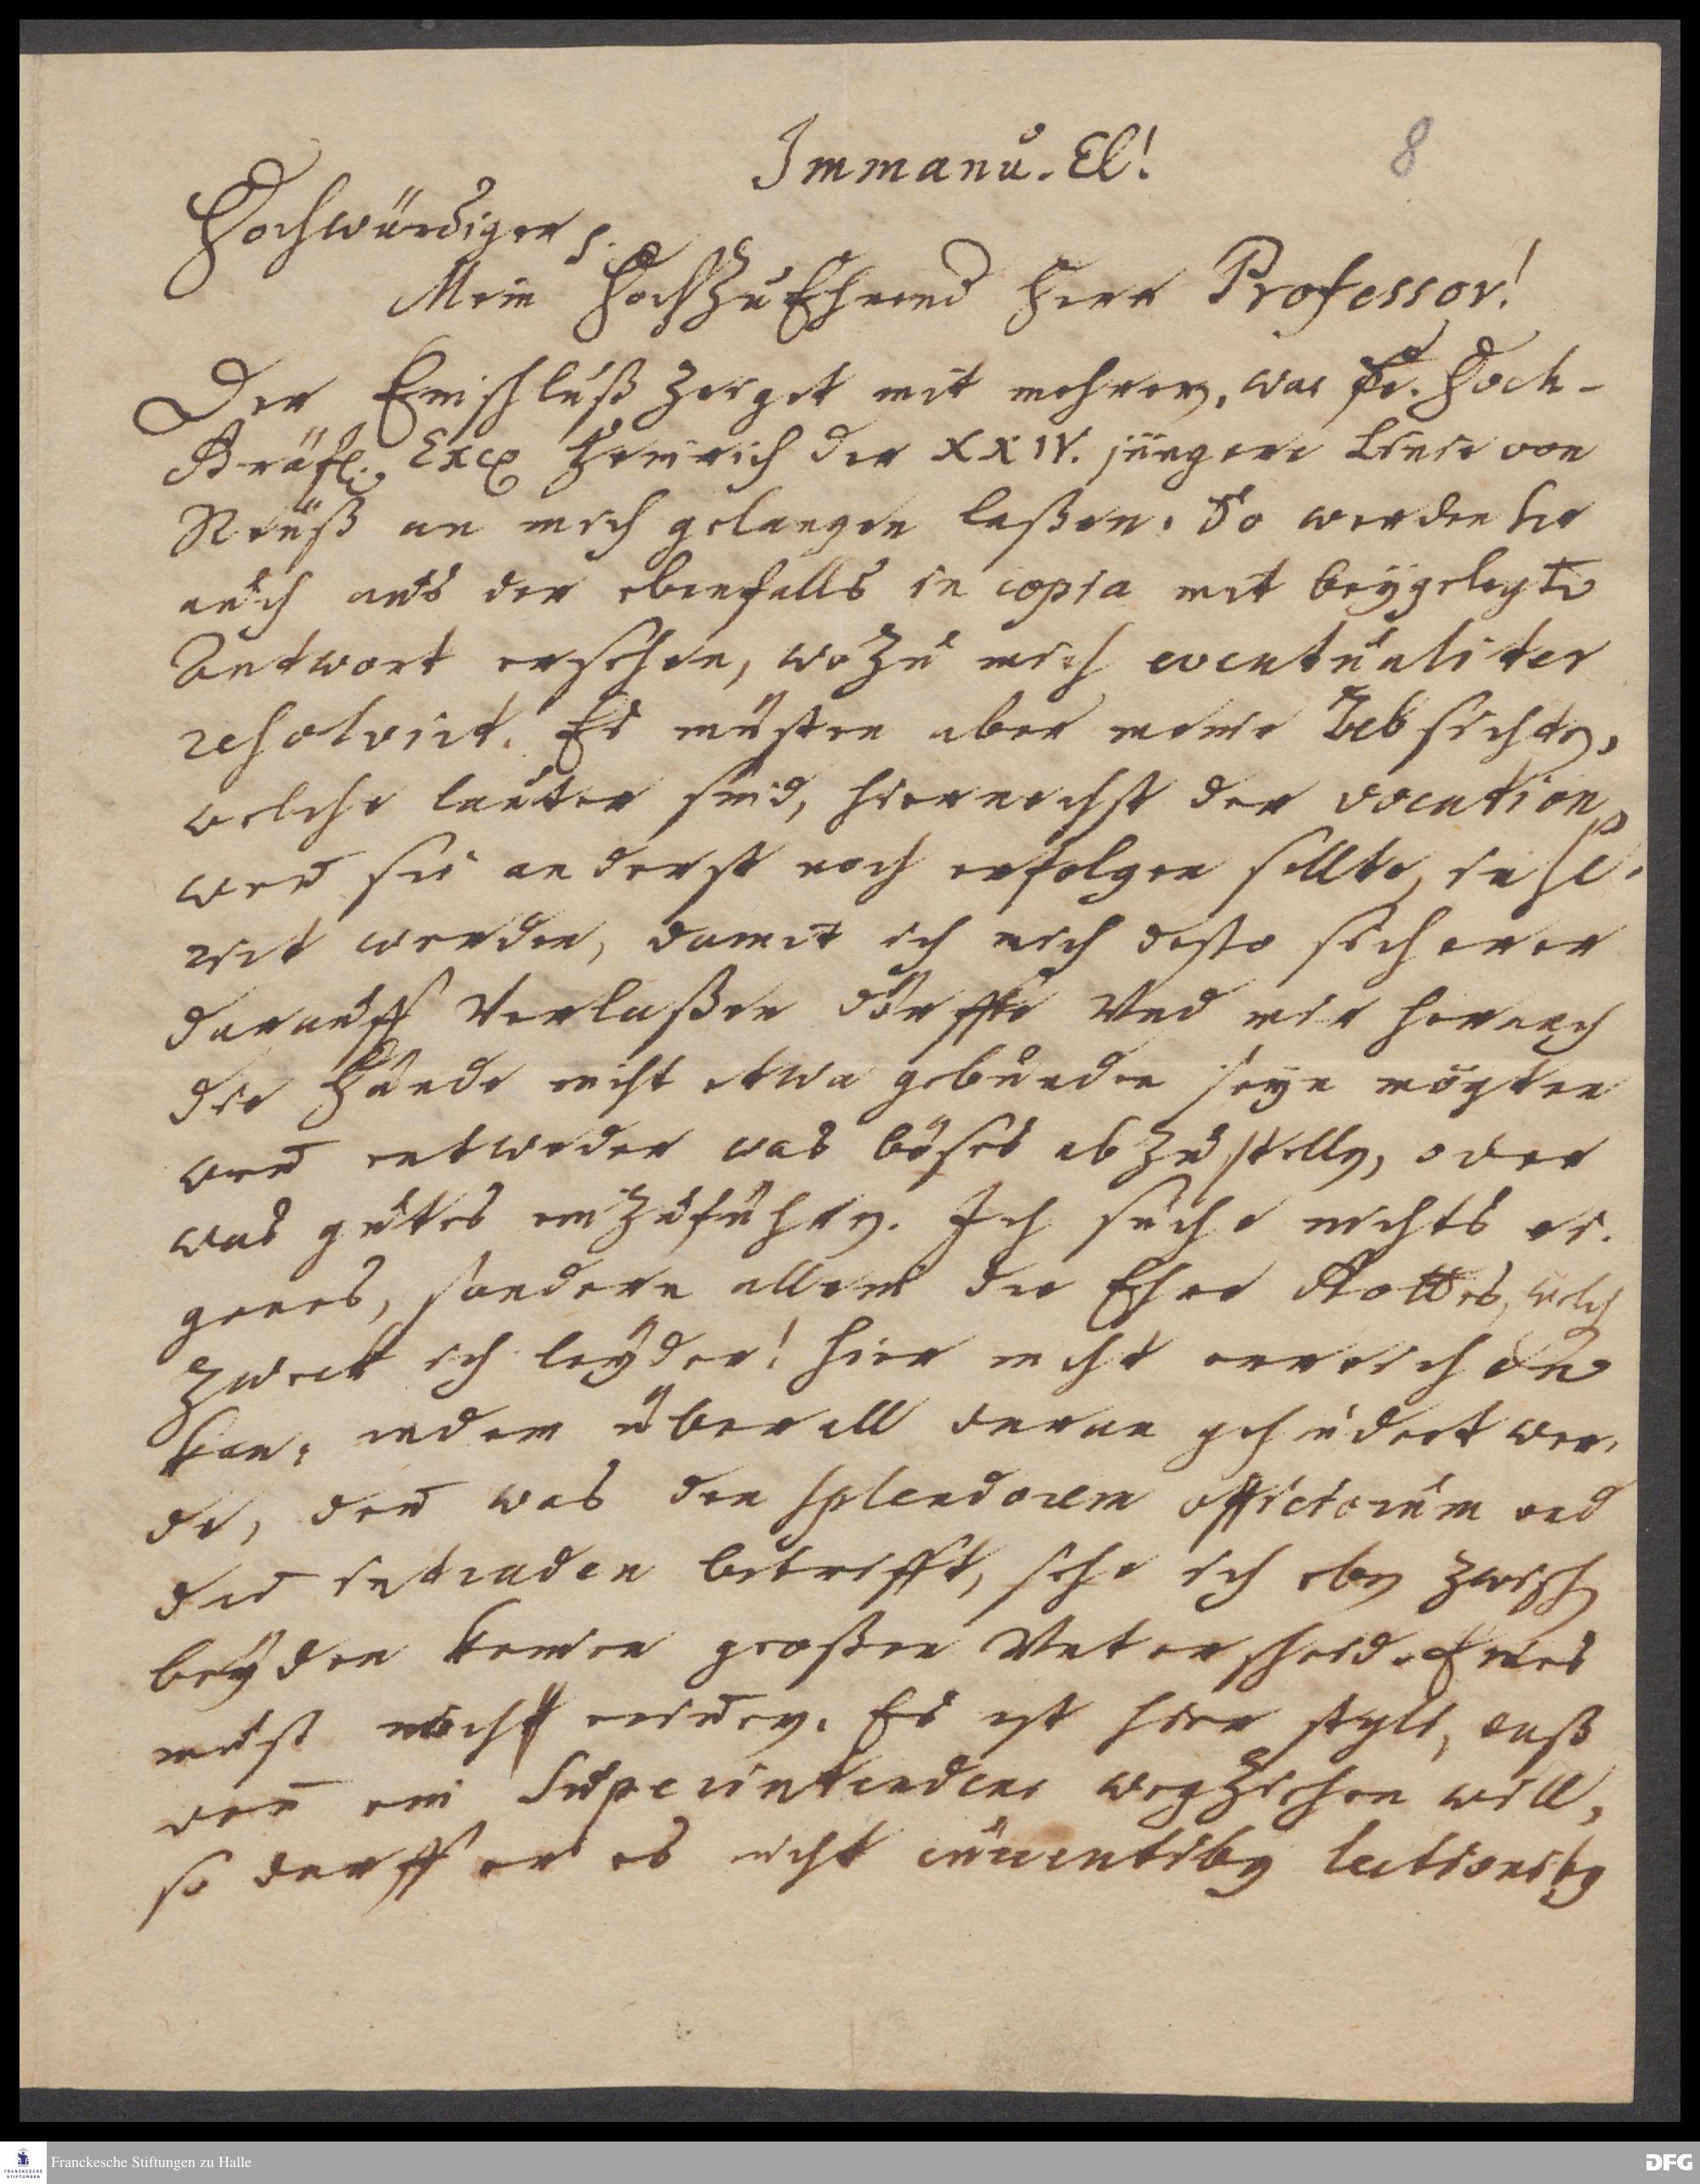 8
Immanu-El!
Hochwürdiger p.
Mein HochZuEhrend Herr Professor!
Der Einschluß zeiget mit mehrern, was Sr. Hoch-
Gräfl. Exc. Heinrich der XXIV. jüngere Linie von
Reuß an mich gelangen laßen. So werden sie
auch aus der ebenfalls in copia mit beygelegten
Antwort ersehen, woZu mich eventualiter
resolvirt. Es müsten aber meine Absichten,
welche lauter sind, hiernechst der vocation,
wen sie anderst noch erfolgen sollte, inse-
rirt werden, damit ich mich desto sicherer
darauff Verlaßen dürffte Und mir hernach
die Hände nicht etwa gebunden seyn mögten
wen entweder was böses abzustellen, oder
was gutes einzuführen. Ich suche nichts ei-
genes, sondern allein die Ehre Gottes, welchen
Zweck ich leyder! hier nicht erreichen
kan, indem überall daran gehindert wer-
de, den was den splendorem officiorum und
die intraden betrifft, sehe ich eben zwischen
beyden keinen großen Unterscheid. Eines
muß noch erinnern. Es ist hier styli, daß
wen ein Superintendens wegziehen will,
so darff er es nicht currentibus lectionibus
Franckesche Stiftungen zu Halle
DFG